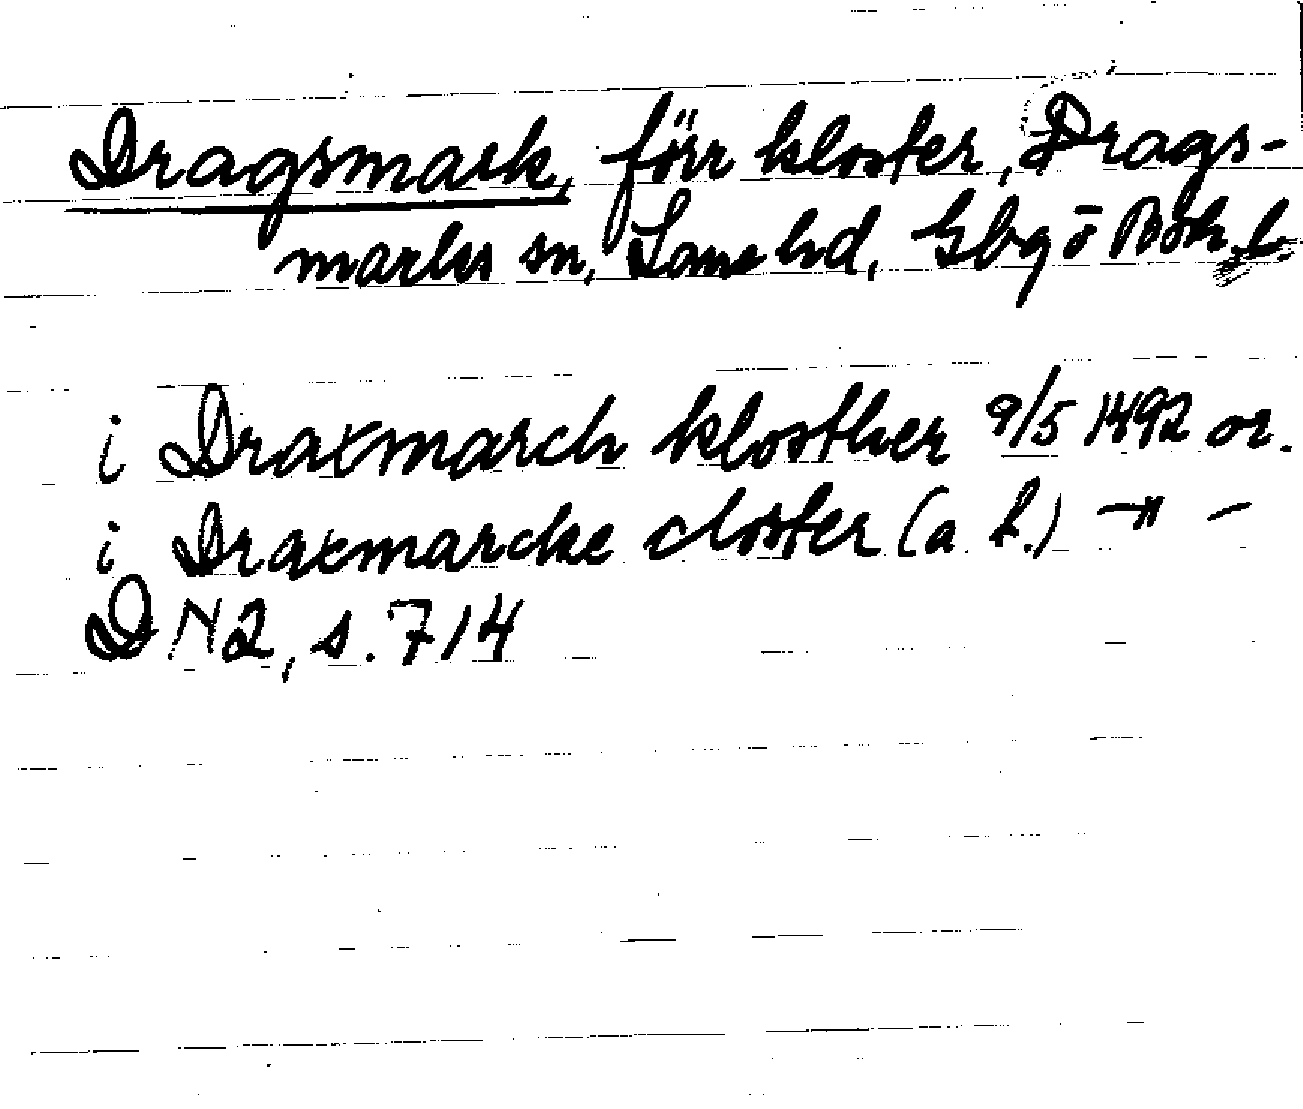 Dragsmark, förr kloster, Drags-
marks sn, Lane hd, Gbg o Boh. l.
i Draxmarch klosther 9/5 1492 or.
i Draxmarcke closter (a. h.) –"–
DN 2, s. 714